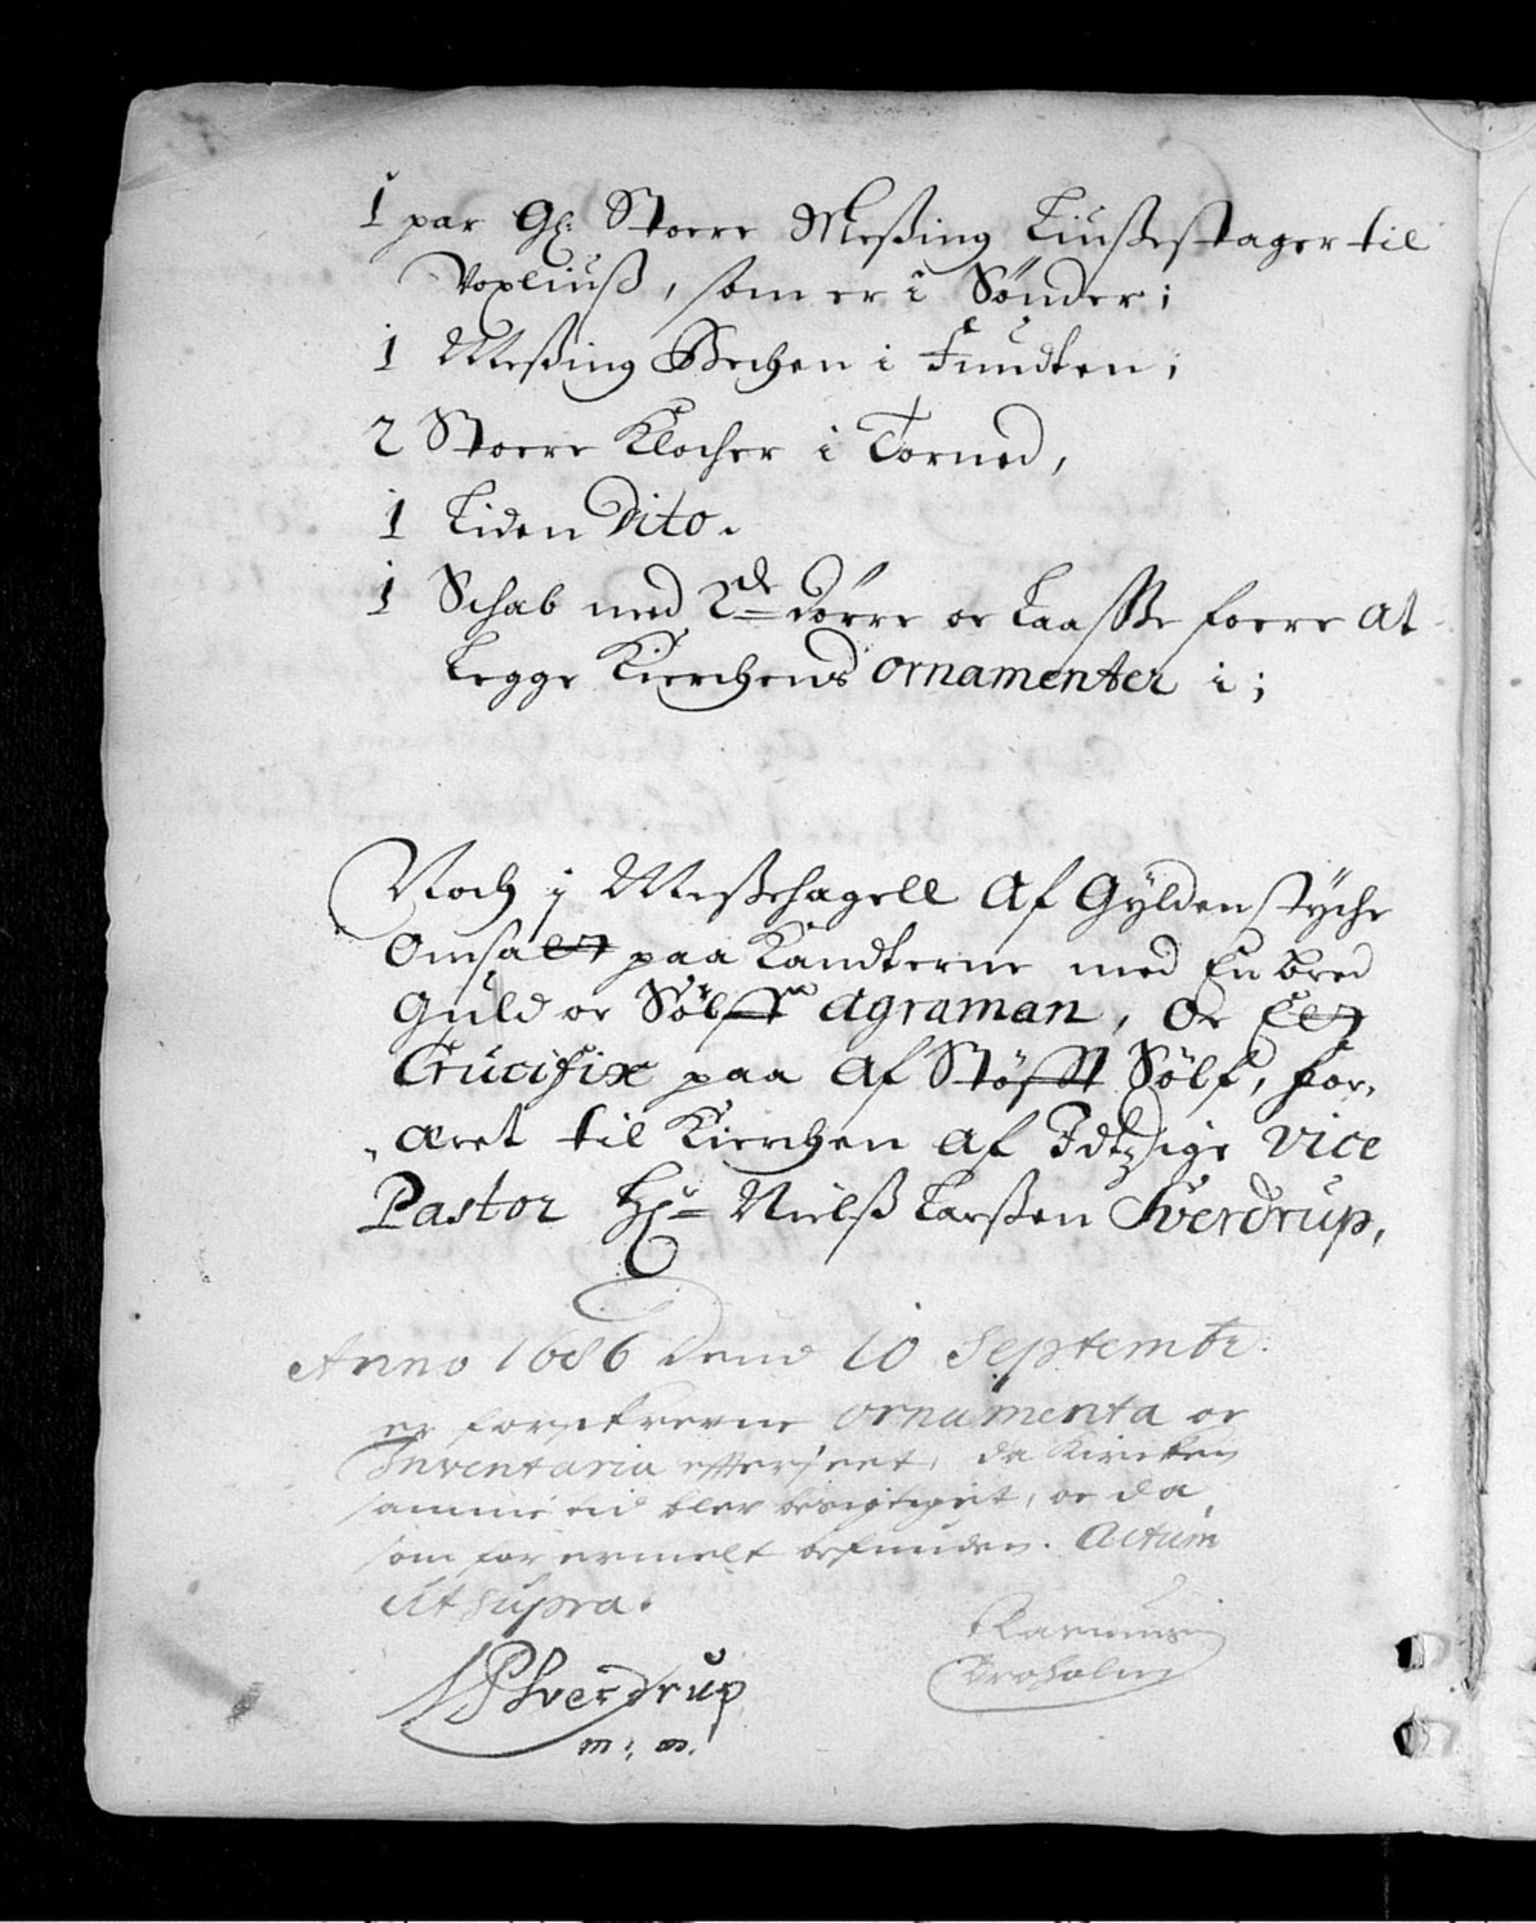 1 par Gl: Stoere Meßing Liußestager til
Voxliuß, som er i Sönder;
1 Meßing Bechen i Fundten;
2 Stoere Klocher i Torned,
1 Liden Dito.
1 Schab med 2de dörre oc Laasse foere at
Legge Kierchens Ornamenter i;
Noch j Meßehagell af Gyldenstyche
Omsatt paa Kandterne med En bred
Guld oc Sölff agraman, Oc Ett
Crucifix paa af Stöfft Sölf, for,
æret til Kierchen af Idtzige Vice
Pastor Hr= Nielß Larßen Sverdrup,
Anno 1686 Dend 10 Septembr:
er forschrevne Ornamenta oc
Inventaria efterseet, da Kircken
samme tid blev besigtiget, oc da,
som for ermelt befunden. Actum
ut supra.
Rasmus
NLSverdrup
m: m.